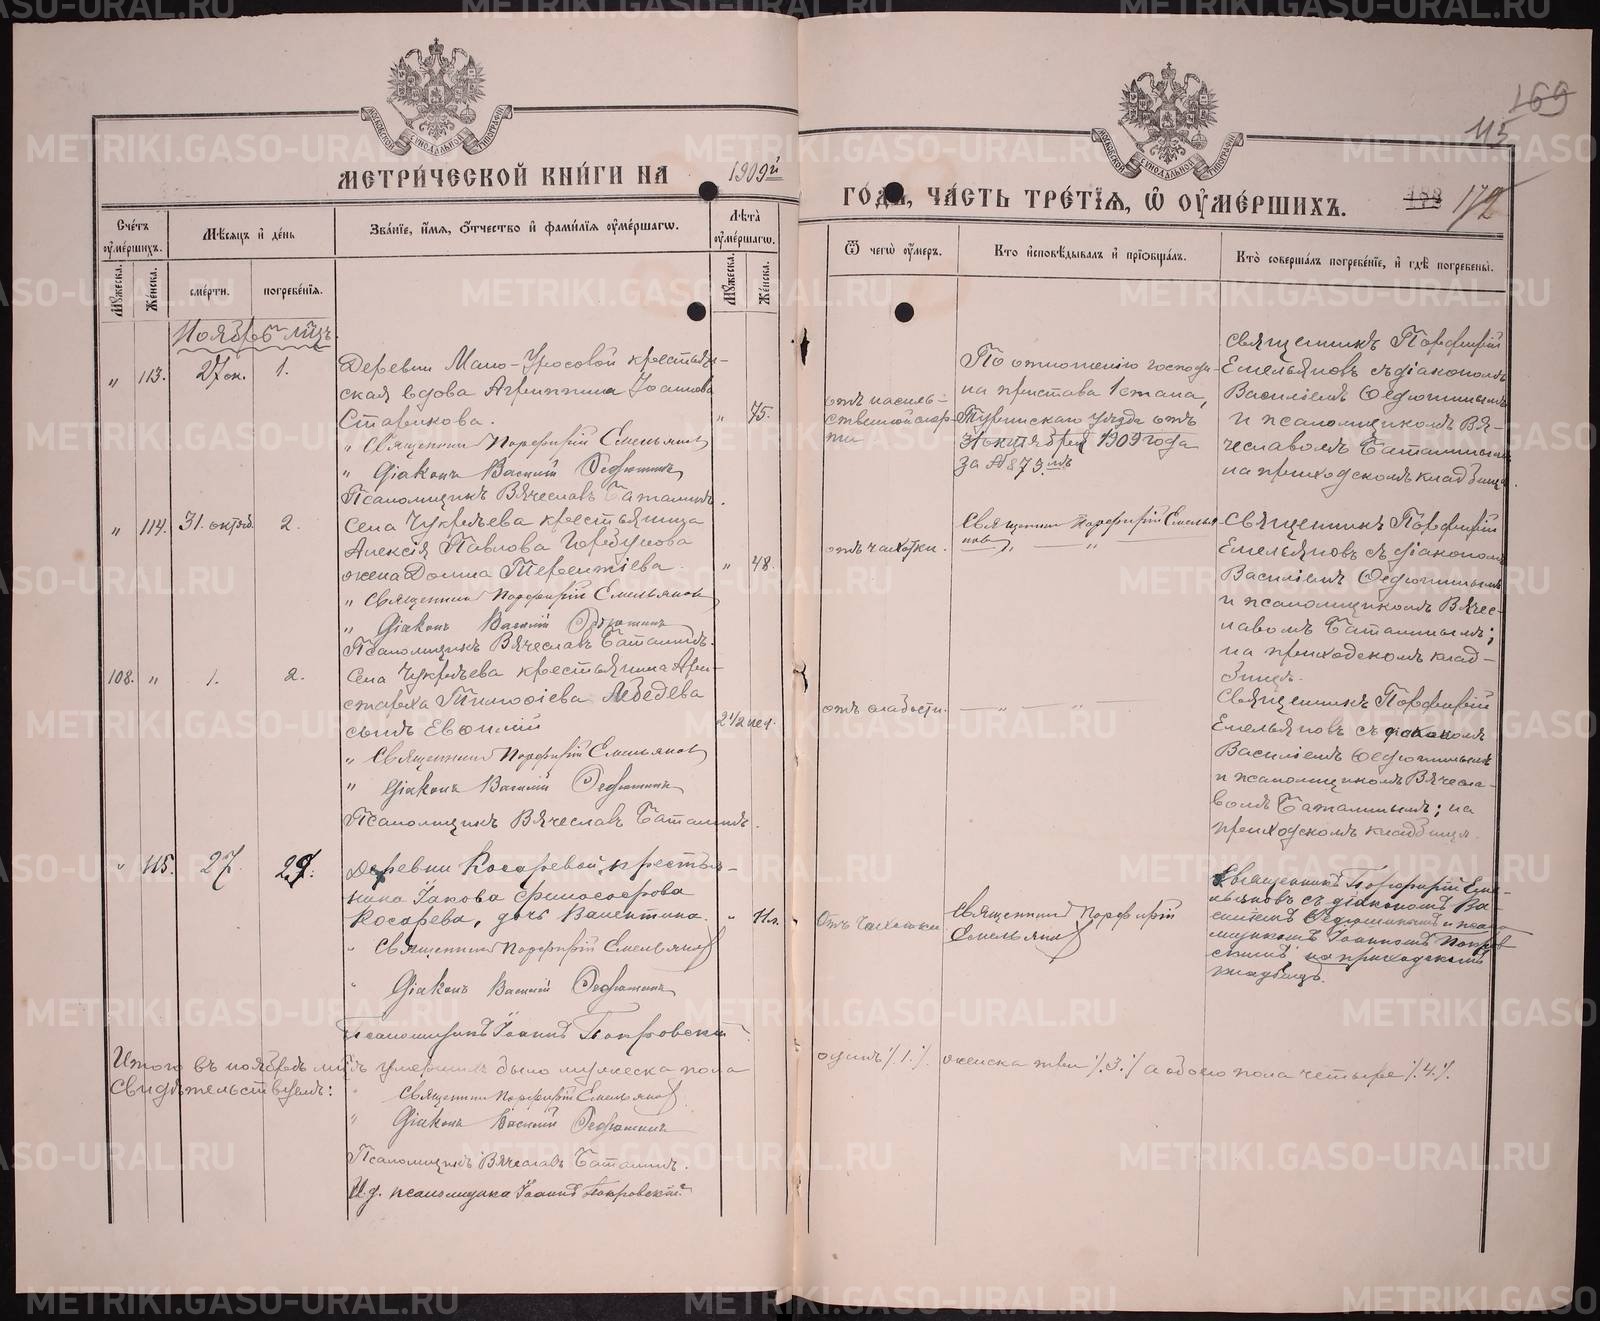 169
115
МЕТРИ́ЧЕСКОЙ КНИ́ГИ НА 1909й
ГОДА, ЧА́СТЬ ТРЕ́ТІѦ, Ѡ҆ ОУ҆МЕ́РШИХЪ.
172
Сче́тъ оу҆ме́ршихъ.
Мѣ́сѧцъ и҆ де́нь
Зва́нїе, и҆́мѧ, ѻ҆́тчество и҆ фами́лїѧ оу҆ме́ршагѡ.
Лѣ́та оу҆ме́ршагѡ.
Ѿ чегѡ̀ оу҆́меръ.
Кто̀ и҆сповѣ́дывалъ и҆ прїѡбща́лъ.
Кто̀ соверша́лъ погребе́нїе, и҆ гдѣ̀ погребены̀.
Мꙋ́жеска.
Же́нска.
сме́рти.
погребе́нїѧ.
Мꙋ́жеска.
Же́нска.
Ноябрь мѣц.
" 113. 27 ок. 1.
Деревни Мало-Уросовой крестьян-
ская вдова Агриппина Іоаннова
Старикова.
" 75.
" Священникъ Порфирій Емельянов
" Діаконъ Василій Ѳедюшинъ
Псаломщикъ Вячеславъ Баталинъ.
отъ насиль-
ственной смер-
ти
По отношенію господи-
на пристава 1 стана,
Туринскаго уезда отъ
31 октября 1909 года
за № 873мъ
Священникъ Порфирій
Емельяновъ съ діакономъ
Василіемъ Ѳедюшинымъ
и псаломщикомъ Вя-
чеславомъ Баталинымъ
на приходскомъ кладбищѣ.
" 114. 31. октяб. 2.
Села Чукреева крестьянина
Алексія Павлова Горбунова
жена Домна Терентіева
" 48.
" Священникъ Порфирій Емельянов
" Діаконъ Василій Ѳедюшинъ
Псаломщикъ Вячеславъ Баталинъ.
отъ чахотки.
Священник Порфирій Емелья
нов " — "
Священникъ Порфирій
Емельяновъ съ діакономъ
Василіемъ Ѳедюшинымъ
и псаломщикомъ Вячес-
лавомъ Баталинымъ;
на приходскомъ клад-
бищѣ.
108. " 1. 2.
Села Чукреева крестьянина Ари-
старха Тимоѳіева Лебедева
сынъ Евѳимій
2 1/2 нед.
" Священникъ Порфирій Емельянов
" Діаконъ Василій Ѳедюшинъ
Псаломщикъ Вячеславъ Баталинъ.
отъ слабости.
— " — " —
Священникъ Порфирій
Емельяновъ съ діакономъ
Василіемъ Ѳедюшинымъ
и псаломщикомъ Вячесла-
вомъ Баталинымъ; на
приходскомъ кладбищѣ.
" 115. 27. 29.
Деревни Косаревой, крестья-
нина Іакова Филосоѳова
Косарева, дочь Валентина.
" 11 л.
" Священникъ Порфирій Емельянов
" Діаконъ Василій Ѳедюшинъ
Псаломщикъ Іоаннъ Покровскій
Отъ чахотки
Священникъ Порфирій
Емельянов
Священникъ Порфирій Еме-
льяновъ съ діакономъ Ва-
силіемъ Ѳедюшинымъ и псало
мщикомъ Іоанномъ Покров
скимъ, на приходскомъ
кладбищѣ.
Итого въ ноябрѣ мцѣ умершихъ было мужеска пола
одинъ /.1./. женска три /.3./ а обоего пола четыре /.4./.
Свидѣтельствуемъ:
" Священникъ Порфирій Емельянов
" Діаконъ Василій Ѳедюшинъ
Псаломщикъ Вячеславъ Баталинъ.
И.д. псаломщика Іоаннъ Покровскій